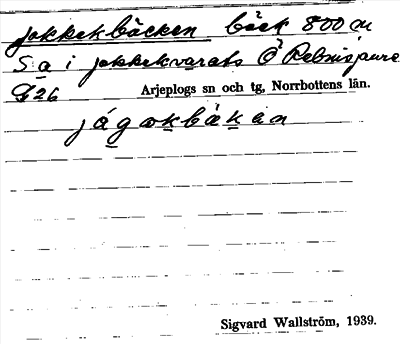 Jokkekbäcken bäck 800 m
S a i Jokkekvarats Ö Rebnisjaure
Arjeplogs sn och tg, Norrbottens län.
Sigvard Wallström, 1939.